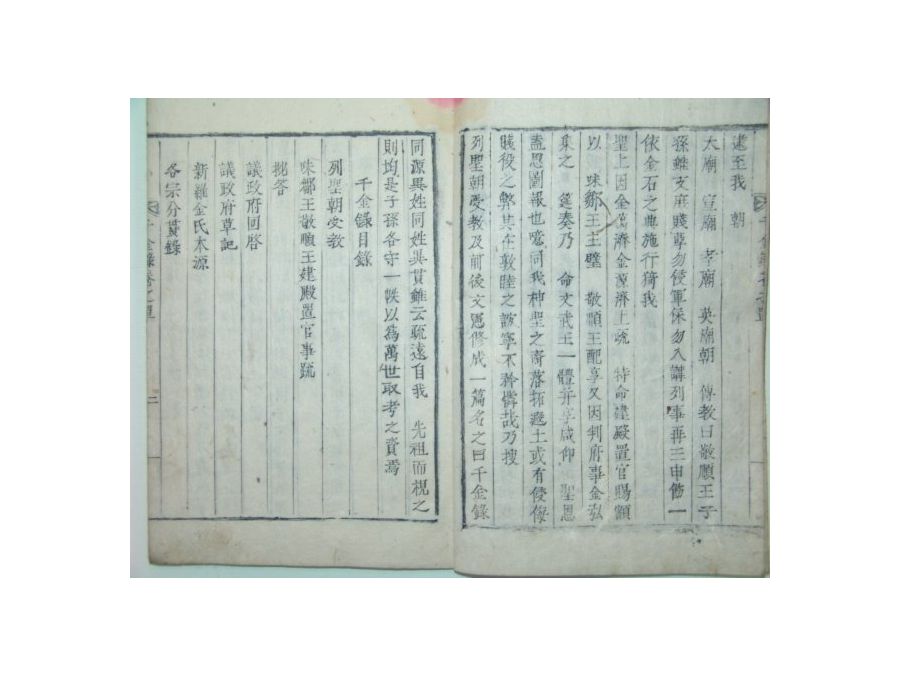 逮至我　朝
大廟　宣廟　孝廟　英廟朝　傳教曰敬順王子
孫雖支庶賤孽勿侵軍保勿入講列事再三申飭一
依金石之典施行猗我
聖上因金　濟金源濟上疏　特命建殿置官賜額
以　味鄒王主壁　敬順王配享又因判府事金弘
集之　筵奏乃　命文武王一體并享咸仰　聖恩
盖思圖報也噫同我神聖之裔落拓遐土或有侵傷
賤役之弊其在敦睦之誼寧不矜憐哉乃搜
列聖朝受教及前後文憑修成一篇名之曰千金錄
千金錄卷之單
同源異姓同姓異貫雖云疏遠自我　先祖而視之
則均是子孫各守一帙以爲萬世取考之資焉
千金錄目錄
列聖朝受教
味鄒王敬順王建殿置官事疏
批答
議政府回啓
議政府草記
新羅金氏本源
各宗分貫錄
千金錄卷之單
二